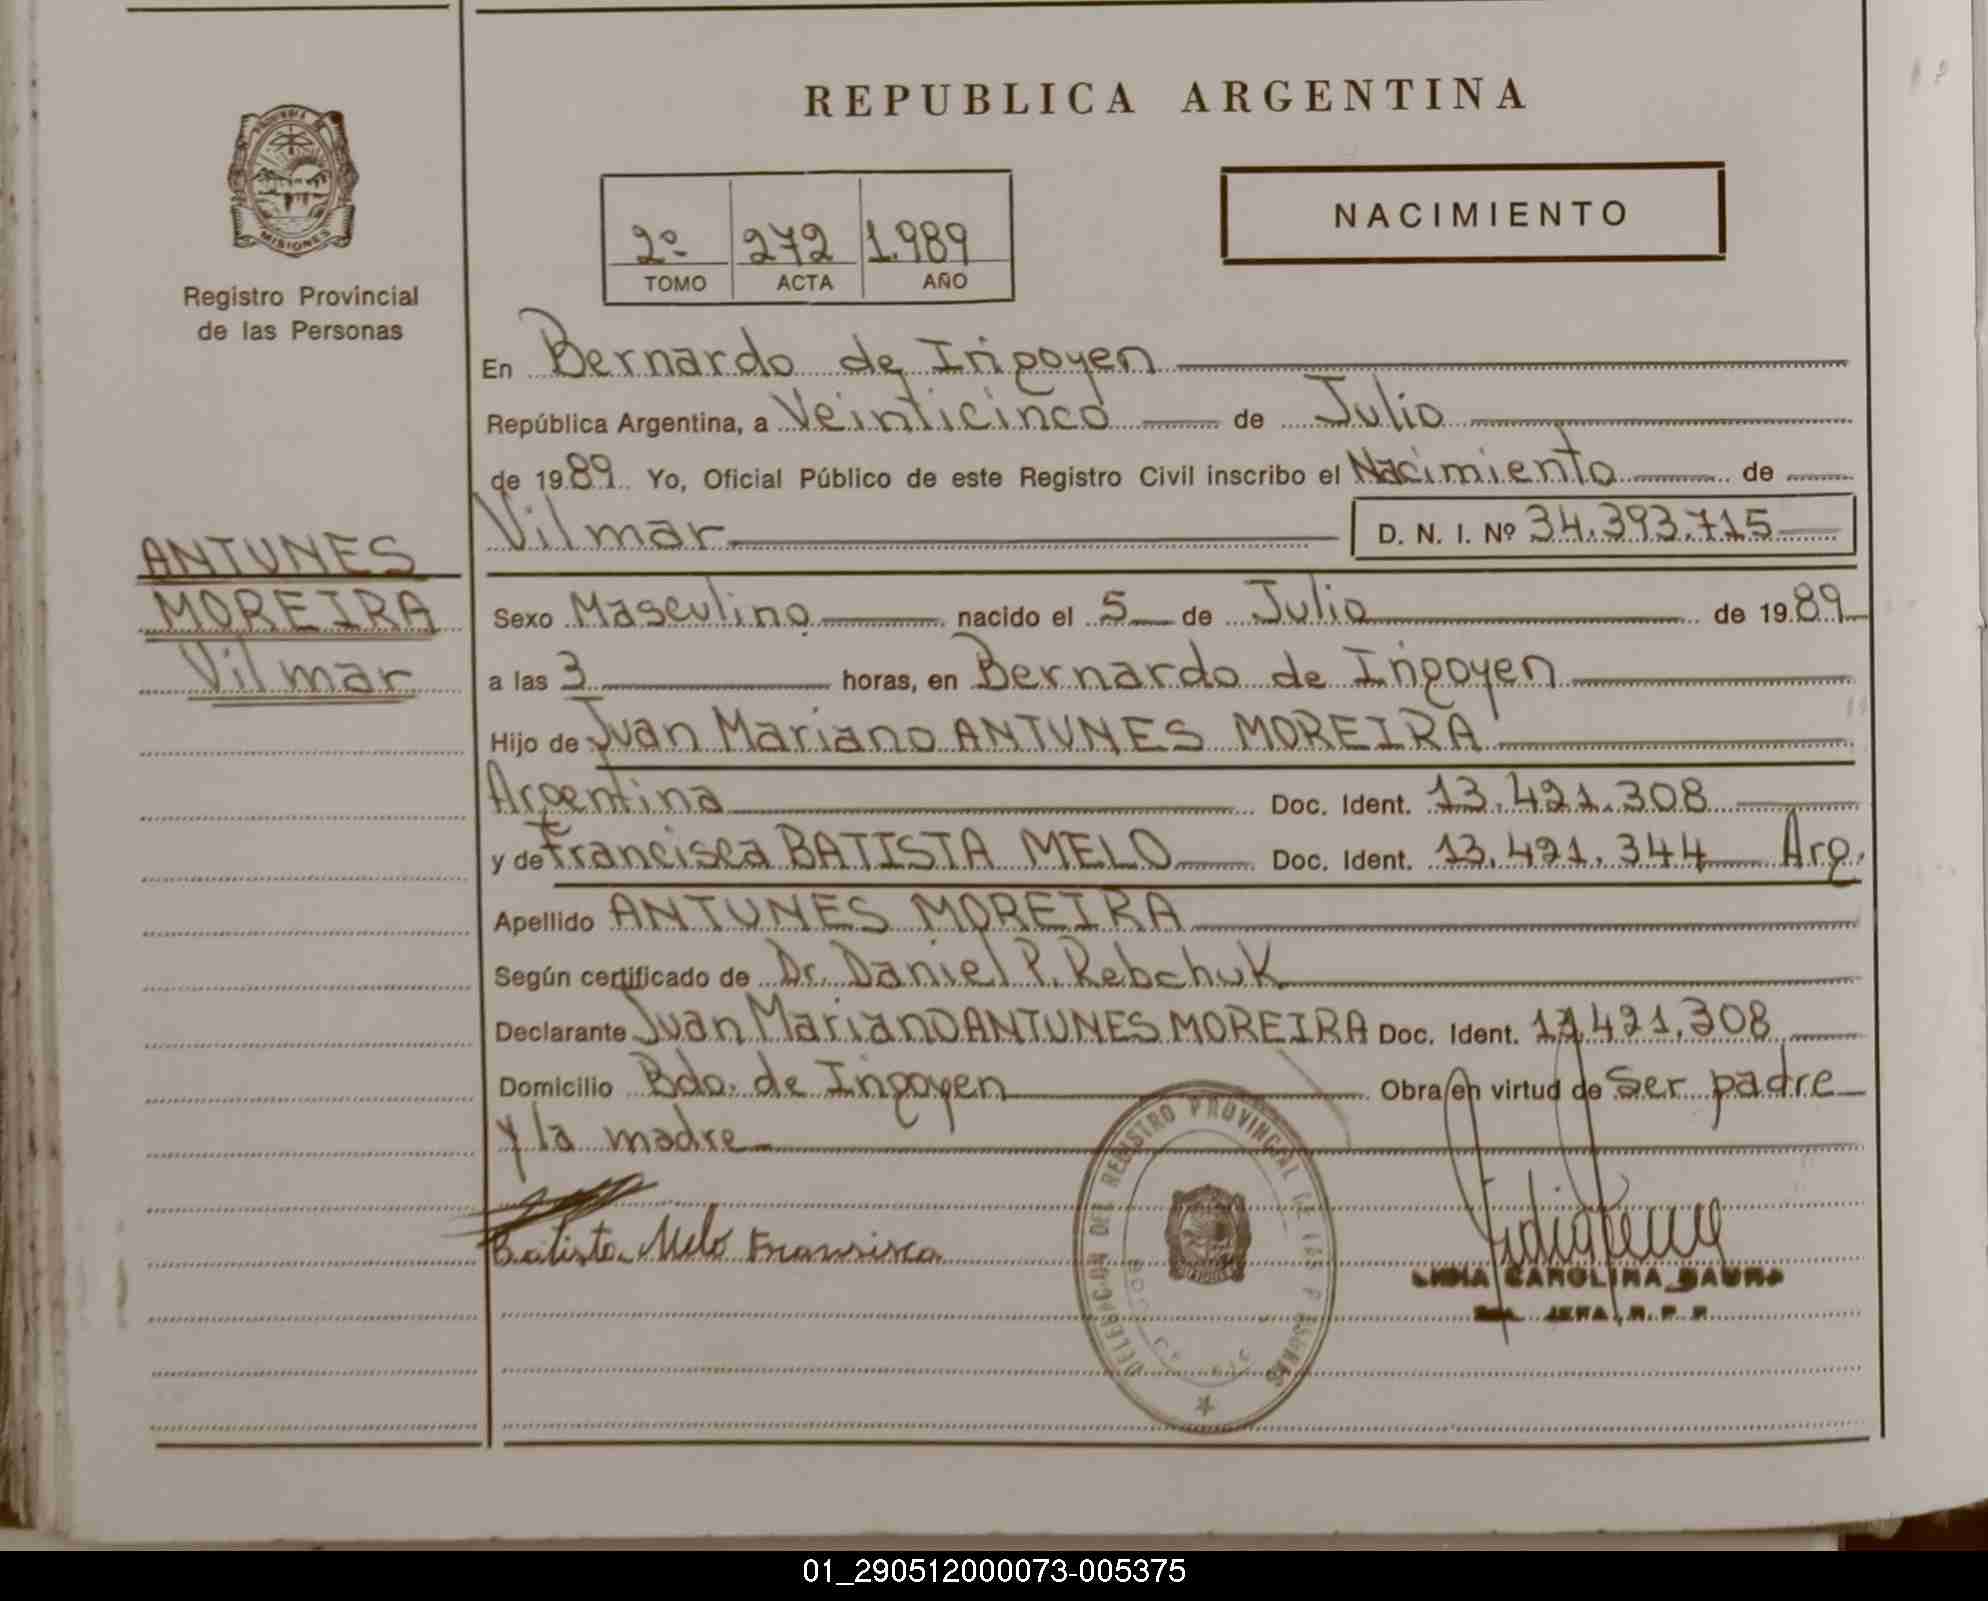 REPUBLICA ARGENTINA
MISIONES
Registro Provincial
de las Personas
NACIMIENTO
2º 272 1.989
TOMO ACTA AÑO
En Bernardo de Irigoyen
República Argentina, a Veinticinco de Julio
de 1989 Yo, Oficial Público de este Registro Civil inscribo el Nacimiento de
Vilmar D. N. I. Nº 34.393.715
ANTUNES
MOREIRA
Vilmar
Sexo Masculino nacido el 5 de Julio de 1989
a las 3 horas, en Bernardo de Irigoyen
Hijo de Juan Mariano ANTUNES MOREIRA
Argentina Doc. Ident. 13.421.308
y de Francisca BATISTA MELO Doc. Ident. 13.421.344 Arg.
Apellido ANTUNES MOREIRA
Según certificado de Dr. Daniel P. Rebchuk
Declarante Juan Mariano ANTUNES MOREIRA Doc. Ident. 13.421.308
Domicilio Bdo. de Irigoyen Obra en virtud de Ser padre
y la madre
Batista Melo Fransisca
DELEGACION DEL REGISTRO PROVINCIAL DE LAS PERSONAS
CAROLINA
JEFA R. P. P.
01_290512000073-005375